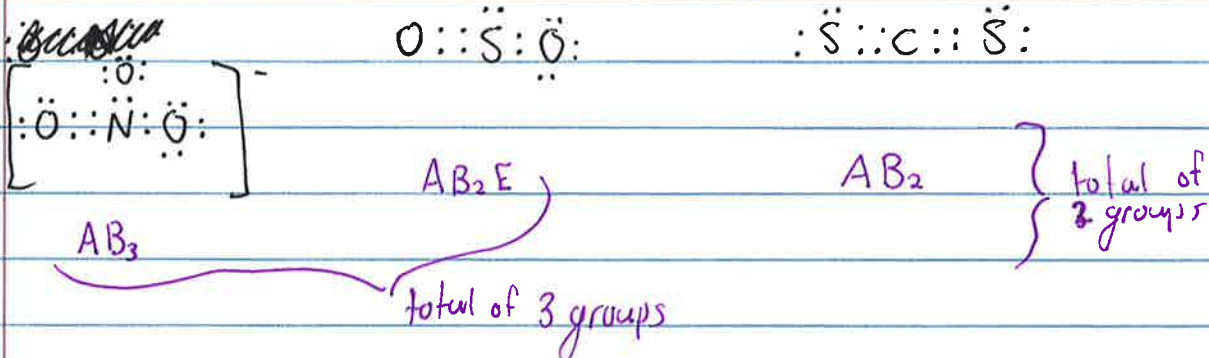 :Ö:
[:Ö::N̈:Ö̤:]⁻
O::S̈:Ö̤:
:S̈::C::S̈:
AB₂E
AB₂
total of
2 groups
AB₃
total of 3 groups